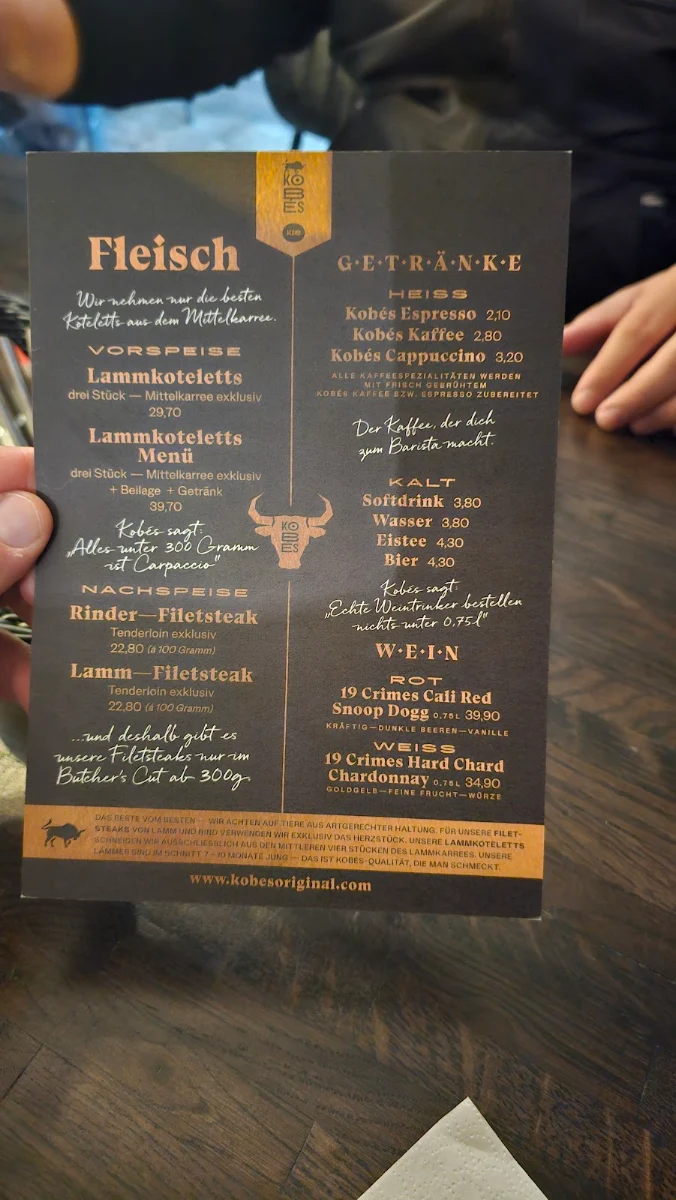 KOBES
Fleisch
Wir nehmen nur die besten
Koteletts aus dem Mittelkarree.
VORSPEISE
Lammkoteletts
drei Stück — Mittelkarree exklusiv
29,70
Lammkoteletts
Menü
drei Stück — Mittelkarree exklusiv
+ Beilage + Getränk
39,70
Kobés sagt:
„Alles unter 300 Gramm
ist Carpaccio"
NACHSPEISE
Rinder—Filetsteak
Tenderloin exklusiv
22,80 (á 100 Gramm)
Lamm—Filetsteak
Tenderloin exklusiv
22,80 (á 100 Gramm)
...und deshalb gibt es
unsere Filetsteaks nur im
Butcher's Cut ab 300g.
KOBES
G·E·T·R·Ä·N·K·E
HEISS
Kobés Espresso 2,10
Kobés Kaffee 2,80
Kobés Cappuccino 3,20
ALLE KAFFEESPEZIALITÄTEN WERDEN
MIT FRISCH GEBRÜHTEM
KOBÉS KAFFEE BZW. ESPRESSO ZUBEREITET
Der Kaffee, der dich
zum Barista macht.
KALT
Softdrink 3,80
Wasser 3,80
Eistee 4,30
Bier 4,30
Kobés sagt:
„Echte Weintrinker bestellen
nichts unter 0,75l"
W·E·I·N
ROT
19 Crimes Cali Red
Snoop Dogg 0,75L 39,90
KRÄFTIG—DUNKLE BEEREN—VANILLE
WEISS
19 Crimes Hard Chard
Chardonnay 0,75L 34,90
GOLDGELB—FEINE FRUCHT—WÜRZE
DAS BESTE VOM BESTEN — WIR ACHTEN AUF TIERE AUS ARTGERECHTER HALTUNG. FÜR UNSERE FILET-
STEAKS VON LAMM UND RIND VERWENDEN WIR EXKLUSIV DAS HERZSTÜCK. UNSERE LAMMKOTELETTS
SCHNEIDEN WIR AUSSCHLIESSLICH AUS DEN MITTLEREN VIER STÜCKEN DES LAMMKARREES. UNSERE
LÄMMER SIND IM SCHNITT 7–10 MONATE JUNG — DAS IST KOBÉS-QUALITÄT, DIE MAN SCHMECKT.
www.kobesoriginal.com